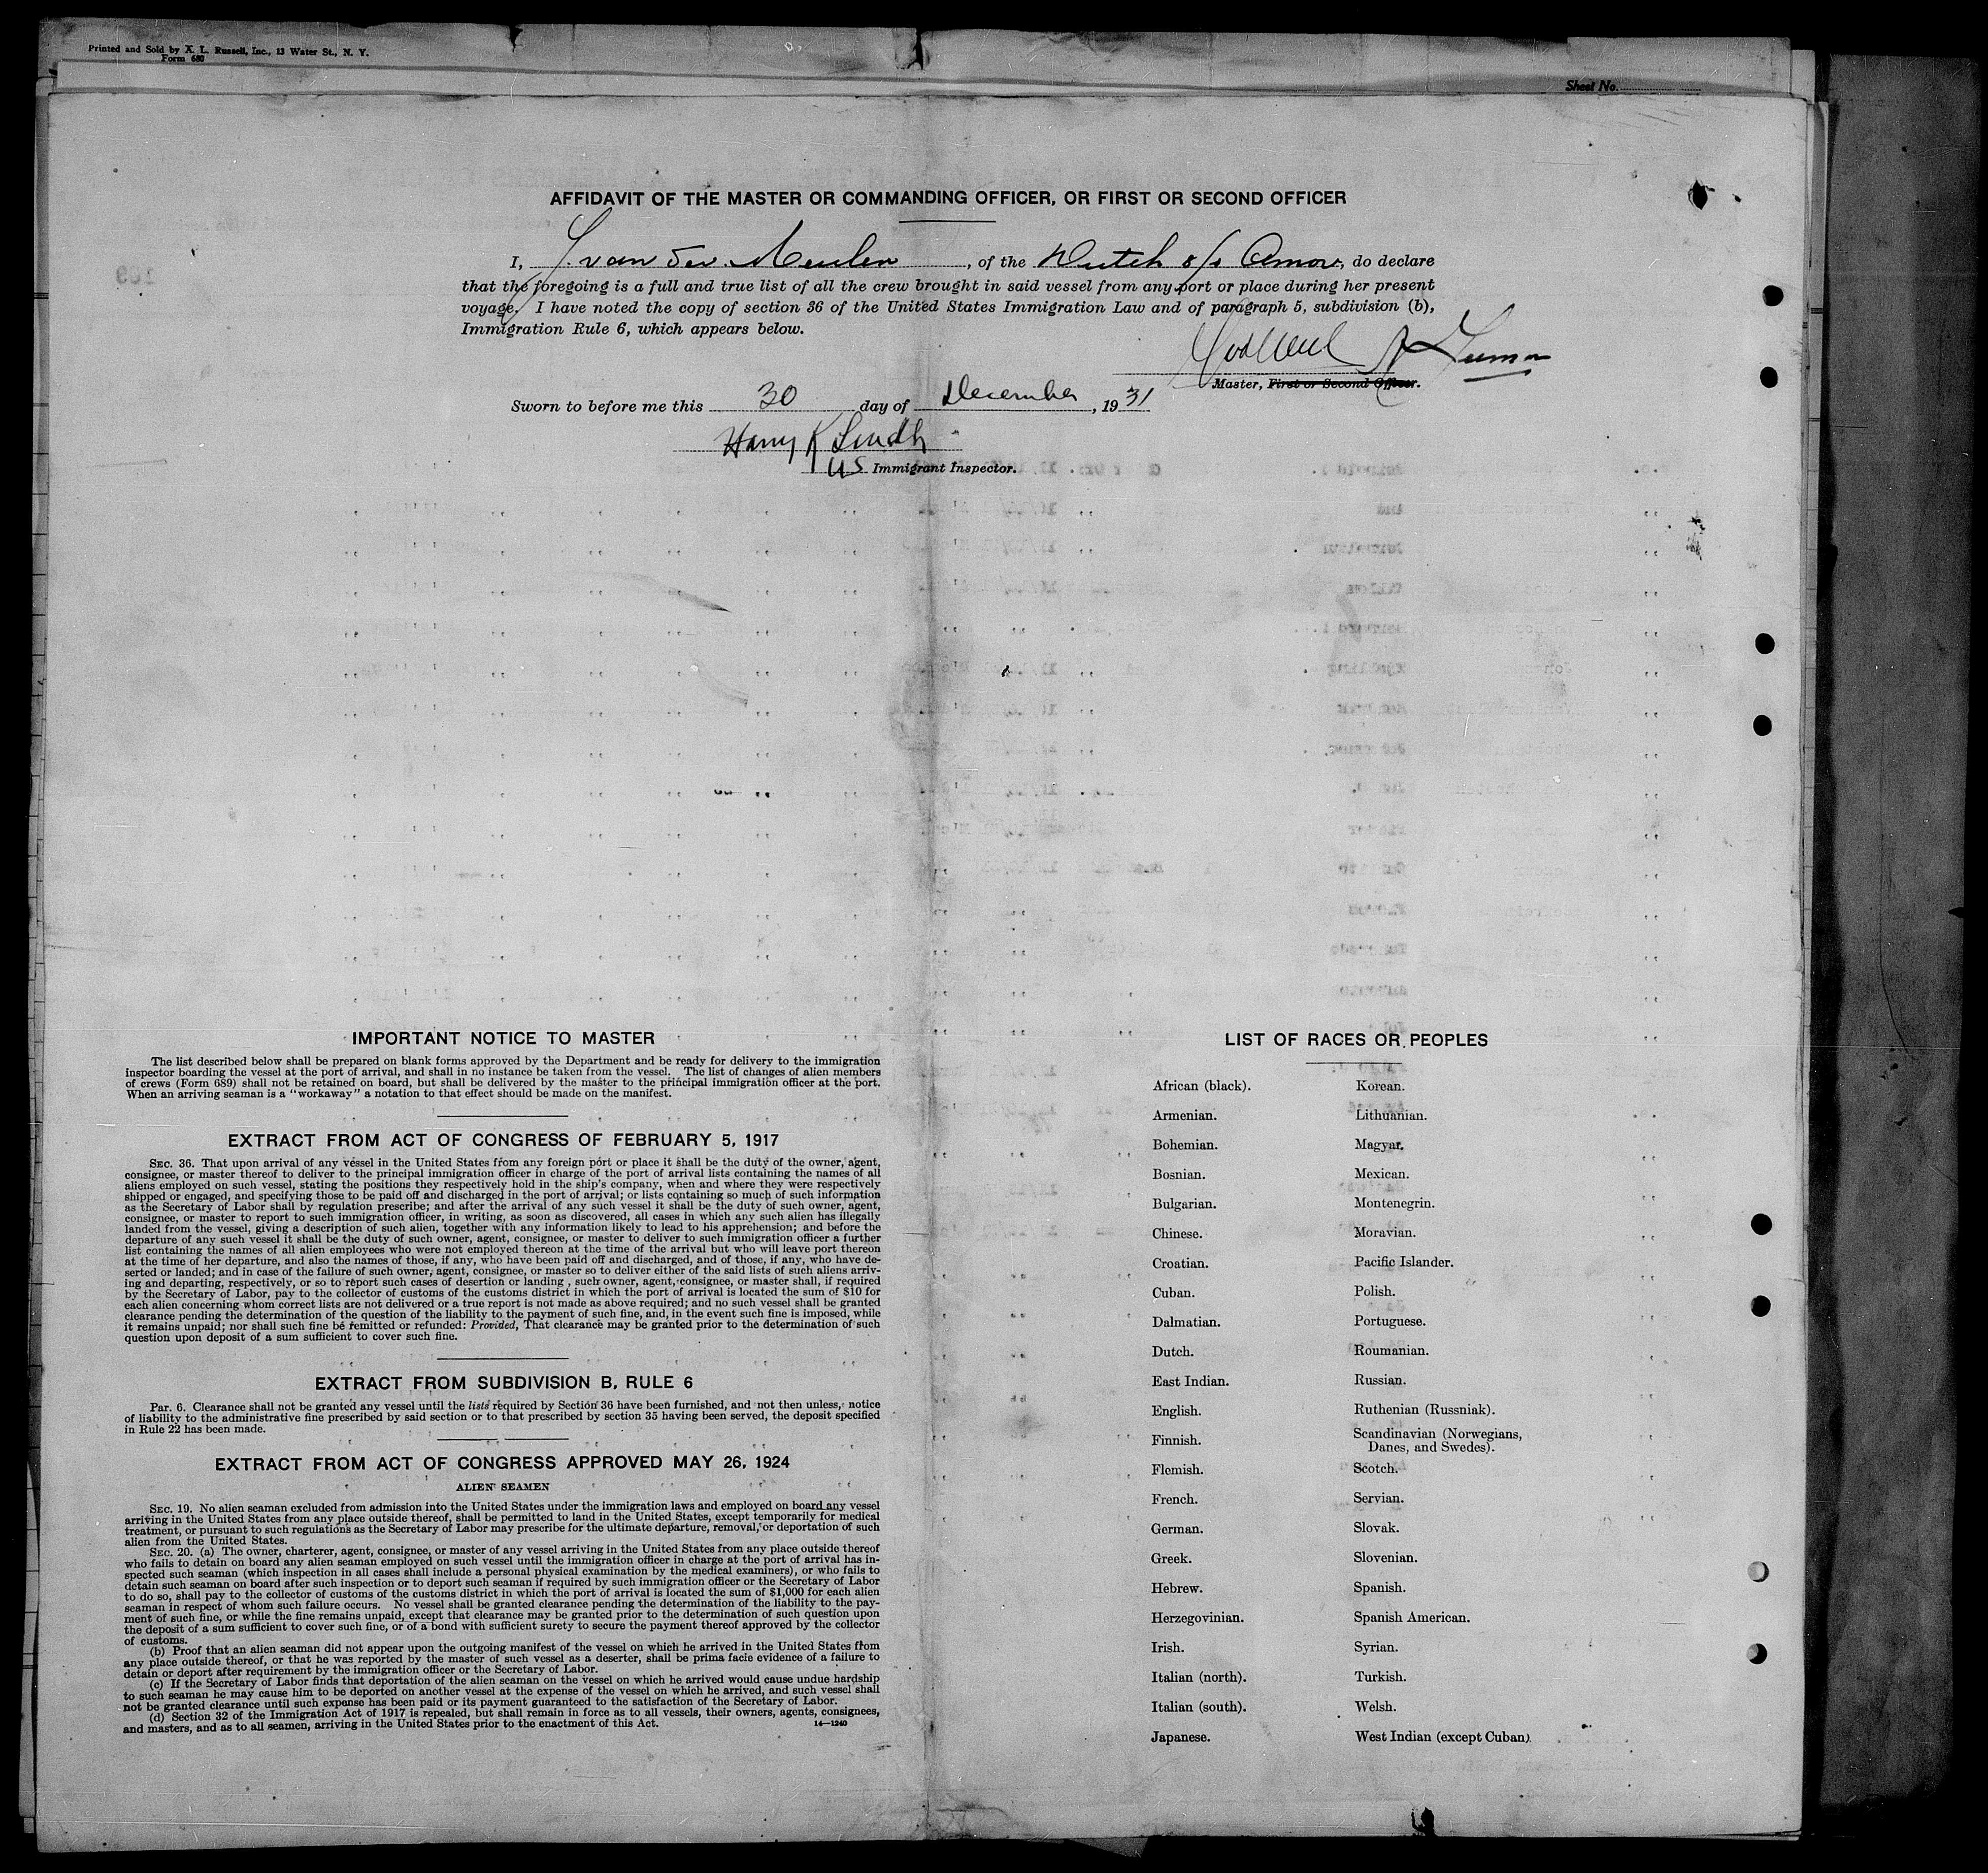 Printed and Sold by X. L. Russell, Inc., 13 Water St., N. Y.
Form 680
Sheet No.
AFFIDAVIT OF THE MASTER OR COMMANDING OFFICER, OR FIRST OR SECOND OFFICER
I, J. van der Meulen, of the Dutch s/s Amor, do declare
that the foregoing is a full and true list of all the crew brought in said vessel from any port or place during her present
voyage. I have noted the copy of section 36 of the United States Immigration Law and of paragraph 5, subdivision (b),
Immigration Rule 6, which appears below.
Master, First or Second Officer.
Sworn to before me this 30 day of December, 1931
Harry K
US Immigrant Inspector.
IMPORTANT NOTICE TO MASTER
The list described below shall be prepared on blank forms approved by the Department and be ready for delivery to the immigration
inspector boarding the vessel at the port of arrival, and shall in no instance be taken from the vessel. The list of changes of alien members
of crews (Form 689) shall not be retained on board, but shall be delivered by the master to the principal immigration officer at the port.
When an arriving seaman is a "workaway" a notation to that effect should be made on the manifest.
EXTRACT FROM ACT OF CONGRESS OF FEBRUARY 5, 1917
SEC. 36. That upon arrival of any vessel in the United States from any foreign port or place it shall be the duty of the owner, agent,
consignee, or master thereof to deliver to the principal immigration officer in charge of the port of arrival lists containing the names of all
aliens employed on such vessel, stating the positions they respectively hold in the ship's company, when and where they were respectively
shipped or engaged, and specifying those to be paid off and discharged in the port of arrival; or lists containing so much of such information
as the Secretary of Labor shall by regulation prescribe; and after the arrival of any such vessel it shall be the duty of such owner, agent,
consignee, or master to report to such immigration officer, in writing, as soon as discovered, all cases in which any such alien has illegally
landed from the vessel, giving a description of such alien, together with any information likely to lead to his apprehension; and before the
departure of any such vessel it shall be the duty of such owner, agent, consignee, or master to deliver to such immigration officer a further
list containing the names of all alien employees who were not employed thereon at the time of the arrival but who will leave port thereon
at the time of her departure, and also the names of those, if any, who have been paid off and discharged, and of those, if any, who have de-
serted or landed; and in case of the failure of such owner, agent, consignee, or master so to deliver either of the said lists of such aliens arriv-
ing and departing, respectively, or so to report such cases of desertion or landing, such owner, agent, consignee, or master shall, if required
by the Secretary of Labor, pay to the collector of customs of the customs district in which the port of arrival is located the sum of $10 for
each alien concerning whom correct lists are not delivered or a true report is not made as above required; and no such vessel shall be granted
clearance pending the determination of the question of the liability to the payment of such fine, and, in the event such fine is imposed, while
it remains unpaid; nor shall such fine be remitted or refunded: Provided, That clearance may be granted prior to the determination of such
question upon deposit of a sum sufficient to cover such fine.
EXTRACT FROM SUBDIVISION B, RULE 6
Par. 6. Clearance shall not be granted any vessel until the lists required by Section 36 have been furnished, and not then unless, notice
of liability to the administrative fine prescribed by said section or to that prescribed by section 35 having been served, the deposit specified
in Rule 22 has been made.
EXTRACT FROM ACT OF CONGRESS APPROVED MAY 26, 1924
ALIEN SEAMEN
SEC. 19. No alien seaman excluded from admission into the United States under the immigration laws and employed on board any vessel
arriving in the United States from any place outside thereof, shall be permitted to land in the United States, except temporarily for medical
treatment, or pursuant to such regulations as the Secretary of Labor may prescribe for the ultimate departure, removal, or deportation of such
alien from the United States.
SEC. 20. (a) The owner, charterer, agent, consignee, or master of any vessel arriving in the United States from any place outside thereof
who fails to detain on board any alien seaman employed on such vessel until the immigration officer in charge at the port of arrival has in-
spected such seaman (which inspection in all cases shall include a personal physical examination by the medical examiners), or who fails to
detain such seaman on board after such inspection or to deport such seaman if required by such immigration officer or the Secretary of Labor
to do so, shall pay to the collector of customs of the customs district in which the port of arrival is located the sum of $1,000 for each alien
seaman in respect of whom such failure occurs. No vessel shall be granted clearance pending the determination of the liability to the pay-
ment of such fine, or while the fine remains unpaid, except that clearance may be granted prior to the determination of such question upon
the deposit of a sum sufficient to cover such fine, or of a bond with sufficient surety to secure the payment thereof approved by the collector
of customs.
(b) Proof that an alien seaman did not appear upon the outgoing manifest of the vessel on which he arrived in the United States from
any place outside thereof, or that he was reported by the master of such vessel as a deserter, shall be prima facie evidence of a failure to
detain or deport after requirement by the immigration officer or the Secretary of Labor.
(c) If the Secretary of Labor finds that deportation of the alien seaman on the vessel on which he arrived would cause undue hardship
to such seaman he may cause him to be deported on another vessel at the expense of the vessel on which he arrived, and such vessel shall
not be granted clearance until such expense has been paid or its payment guaranteed to the satisfaction of the Secretary of Labor.
(d) Section 32 of the Immigration Act of 1917 is repealed, but shall remain in force as to all vessels, their owners, agents, consignees,
and masters, and as to all seamen, arriving in the United States prior to the enactment of this Act. 14—1240
LIST OF RACES OR PEOPLES
African (black). Korean.
Armenian. Lithuanian.
Bohemian. Magyar.
Bosnian. Mexican.
Bulgarian. Montenegrin.
Chinese. Moravian.
Croatian. Pacific Islander.
Cuban. Polish.
Dalmatian. Portuguese.
Dutch. Roumanian.
East Indian. Russian.
English. Ruthenian (Russniak).
Finnish. Scandinavian (Norwegians,
Danes, and Swedes).
Flemish. Scotch.
French. Servian.
German. Slovak.
Greek. Slovenian.
Hebrew. Spanish.
Herzegovinian. Spanish American.
Irish. Syrian.
Italian (north). Turkish.
Italian (south). Welsh.
Japanese. West Indian (except Cuban)